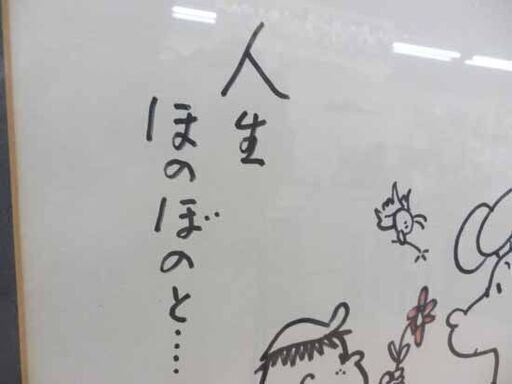 人生
ほのぼのと・・・・・